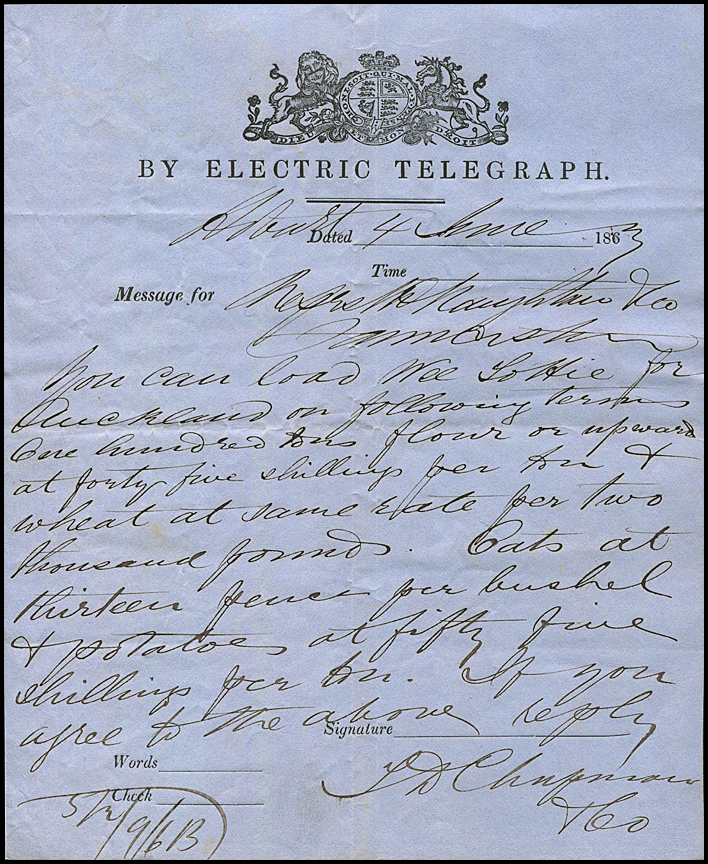 HONI SOIT QUI MAL Y PENSE
DIEU ET MON DROIT
BY ELECTRIC TELEGRAPH.
Hobart Dated 4 June 1863
Time
Message for McNaughton & Co
You can load Wee Lottie for
Auckland on following terms
One hundred tons flour or upward
at forty five shillings per ton &
wheat at same rate per two
thousand pounds. Oats at
thirteen pence per bushel
& potatoes at fifty five
shillings per ton. If you
agree to the above reply
Signature
T D Chapman
& Co
Words
Check